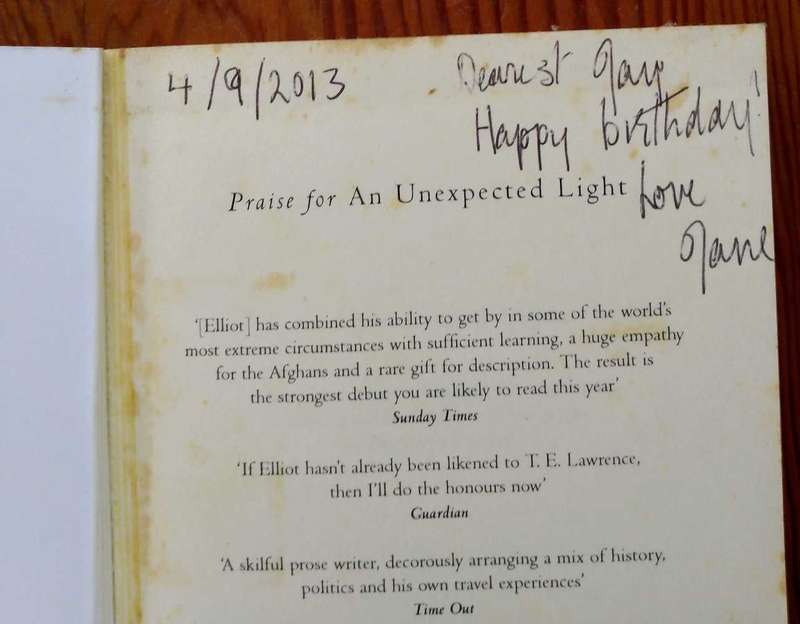 4/9/2013
Dearest Jay
Happy birthday!
Love
Jane
Praise for An Unexpected Light
'[Elliot] has combined his ability to get by in some of the world's
most extreme circumstances with sufficient learning, a huge empathy
for the Afghans and a rare gift for description. The result is
the strongest debut you are likely to read this year'
Sunday Times
'If Elliot hasn't already been likened to T. E. Lawrence,
then I'll do the honours now'
Guardian
'A skilful prose writer, decorously arranging a mix of history,
politics and his own travel experiences'
Time Out